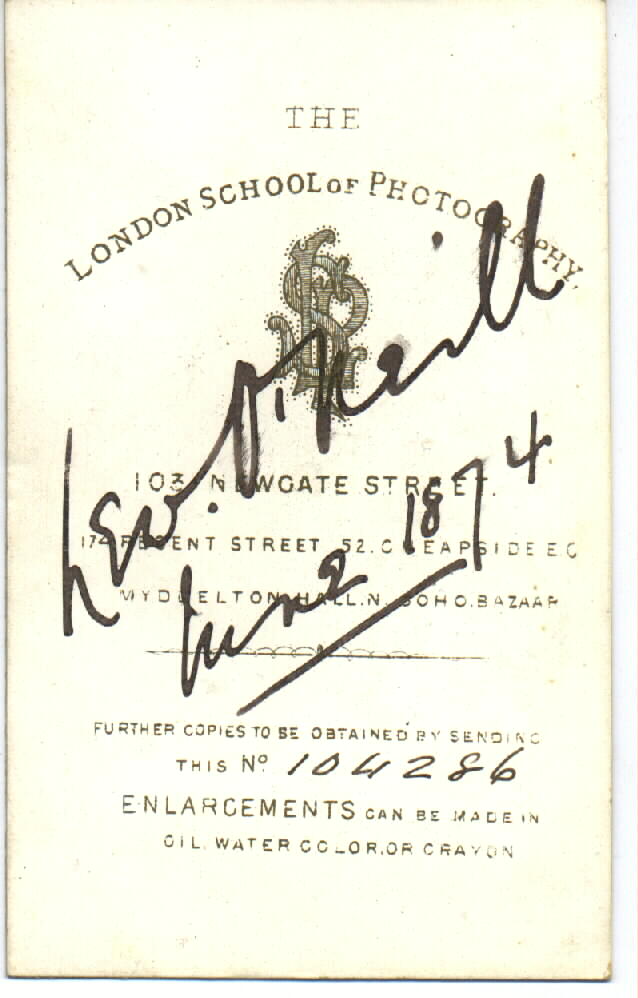 THE
LONDON SCHOOL OF PHOTOGRAPHY.
Lew. O'Neill
June 1874.
103, NEWGATE STREET.
174 REGENT STREET 52. CHEAPSIDE E.C
MYDDELTON HALL. N. SOHO. BAZAAR
FURTHER COPIES TO BE OBTAINED BY SENDING
THIS Nº 104286
ENLARGEMENTS CAN BE MADE IN
OIL, WATER COLOR, OR CRAYON